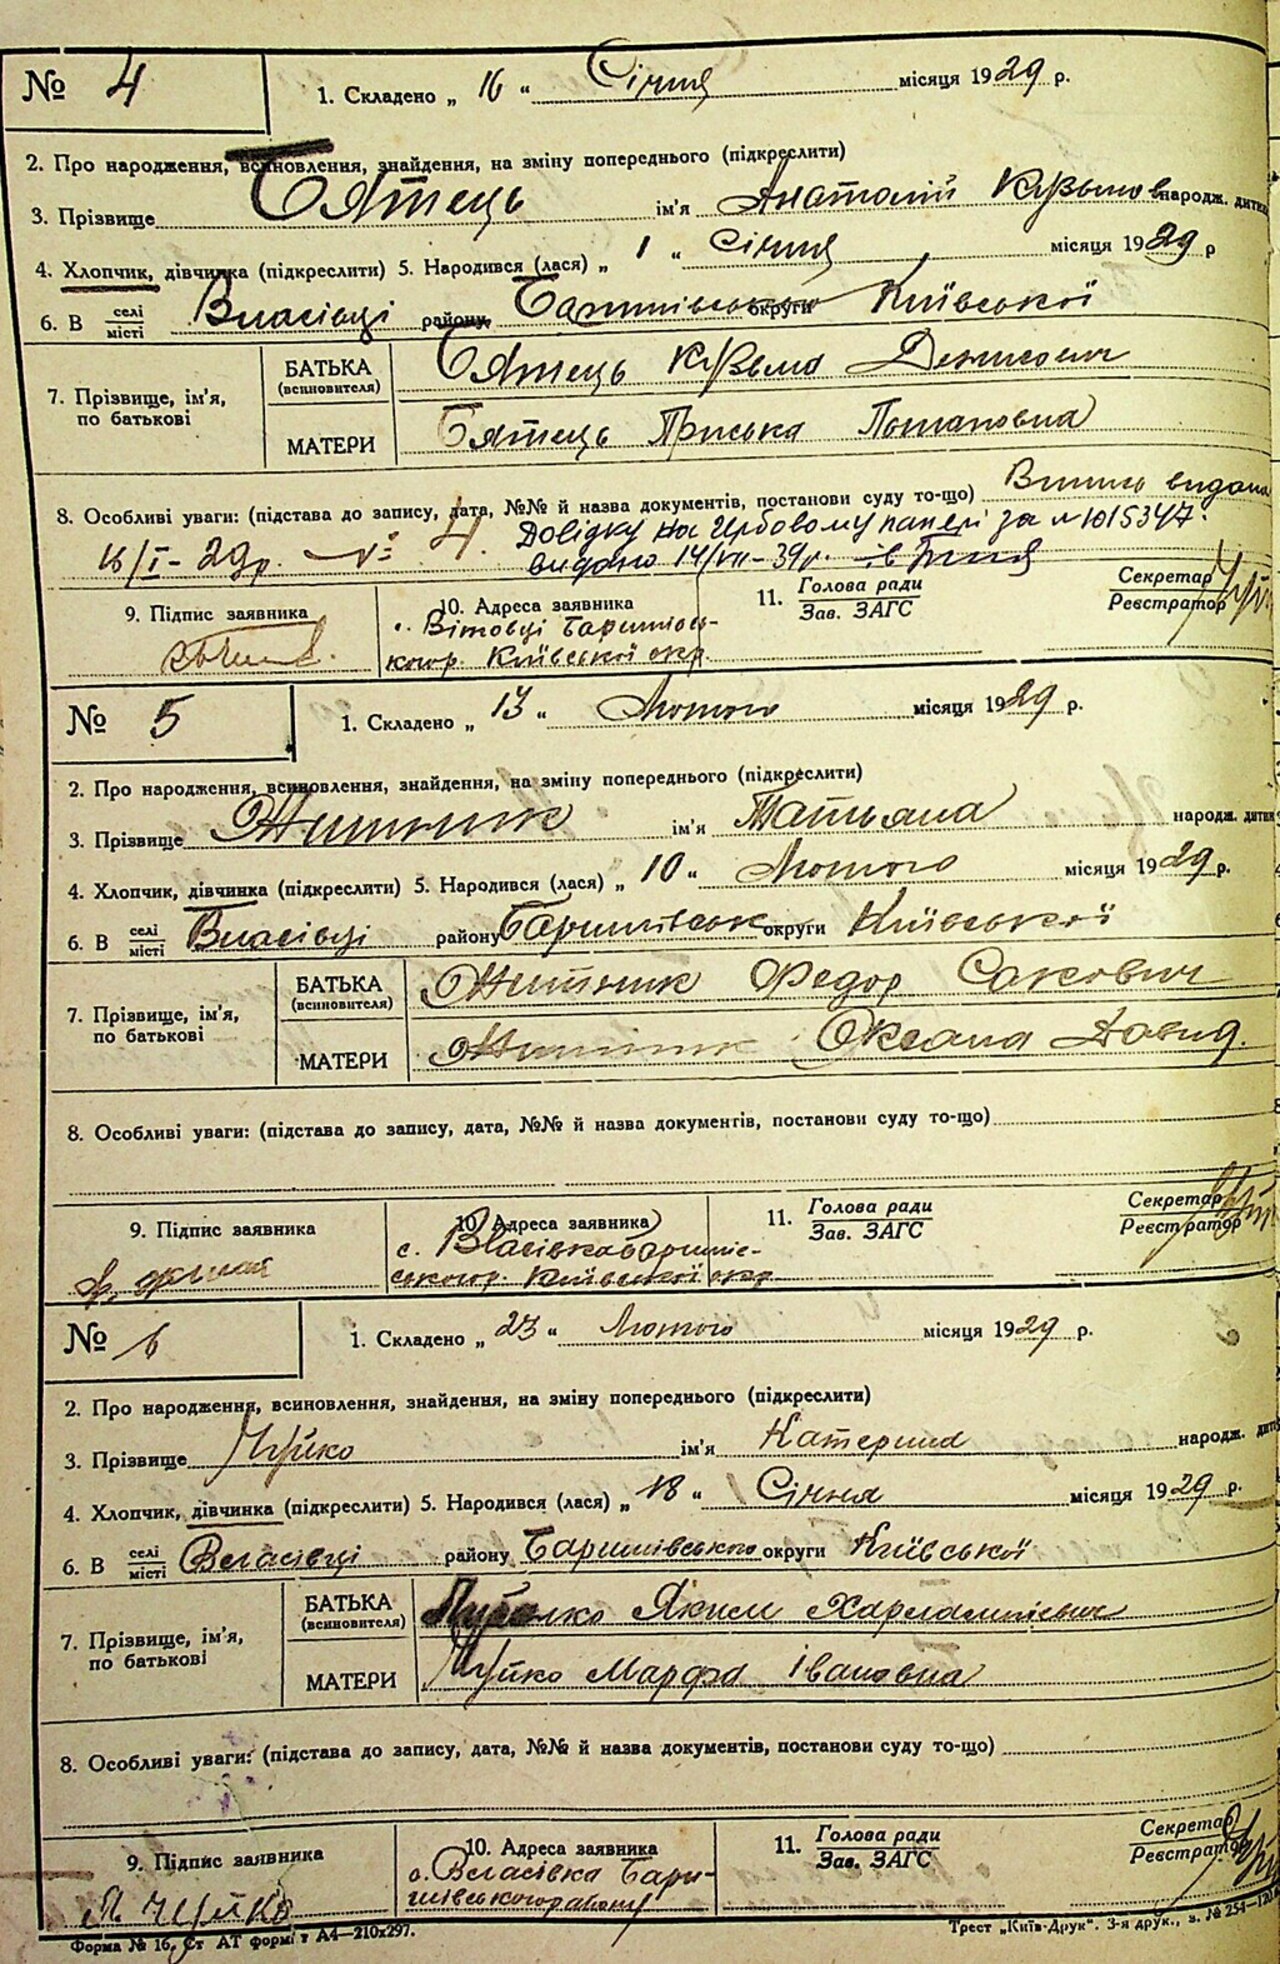 № 4 1. Складено „ 16 “ Січня місяця 1929 р.
2. Про народження, всиновлення, знайдення, на зміну попереднього (підкреслити)
3. Прізвище Бятець ім'я Анатолій Кузьмов народж. дитин
4. Хлопчик, дівчинка (підкреслити) 5. Народився (лася) „ 1 “ січня місяця 1929 р
6. В селі/місті Власівці району Баришівського округи Київської
7. Прізвище, ім'я, по батькові
БАТЬКА (всиновителя) Бятець Кузьма Денисович
МАТЕРИ Бятець Пріська Потаповна
8. Особливі уваги: (підстава до запису, дата, №№ й назва документів, постанови суду то-що) Випись видана
16/I–29р. № 4. Довідку на гербовому папері за № 1015347.
видано 14/VII–39р.
9. Підпис заявника
10. Адреса заявника
с. Вітовці Баришівсь-
когор. Київської окр.
11. Голова ради
Зав. ЗАГС
Секретар
Реєстратор
№ 5 1. Складено „ 13 “ Лютого місяця 1929 р.
2. Про народження, всиновлення, знайдення, на зміну попереднього (підкреслити)
3. Прізвище Житник ім'я Татьяна народж. дитин
4. Хлопчик, дівчинка (підкреслити) 5. Народився (лася) „ 10 “ Лютого місяця 1929 р.
6. В селі/місті Власівці району Баришівськ округи Київської
7. Прізвище, ім'я, по батькові
БАТЬКА (всиновителя) Житник Федор Сакович
МАТЕРИ Житник Оксана Давид.
8. Особливі уваги: (підстава до запису, дата, №№ й назва документів, постанови суду то-що)
9. Підпис заявника
10. Адреса заявника
с. Власівка Баришів-
ськогор. Київської окр.
11. Голова ради
Зав. ЗАГС
Секретар
Реєстратор
№ 6 1. Складено „ 23 “ Лютого місяця 1929 р.
2. Про народження, всиновлення, знайдення, на зміну попереднього (підкреслити)
3. Прізвище Чуйко ім'я Катерина народж. дити
4. Хлопчик, дівчинка (підкреслити) 5. Народився (лася) „ 18 “ Січня місяця 1929 р.
6. В селі/місті Власівці району Баришівського округи Київської
7. Прізвище, ім'я, по батькові
БАТЬКА (всиновителя) Яким Харлампієвич
МАТЕРИ Чуйко Марфа Івановна
8. Особливі уваги: (підстава до запису, дата, №№ й назва документів, постанови суду то-що)
9. Підпис заявника
М Чуйко
10. Адреса заявника
с. Власівка Бари-
шівськогорайону
11. Голова ради
Зав. ЗАГС
Секретар
Реєстратор
Форма № 16, Ст АТ формат А4—210x297.
Трест „Київ-Друк“. 3-я друк., з. № 254—120